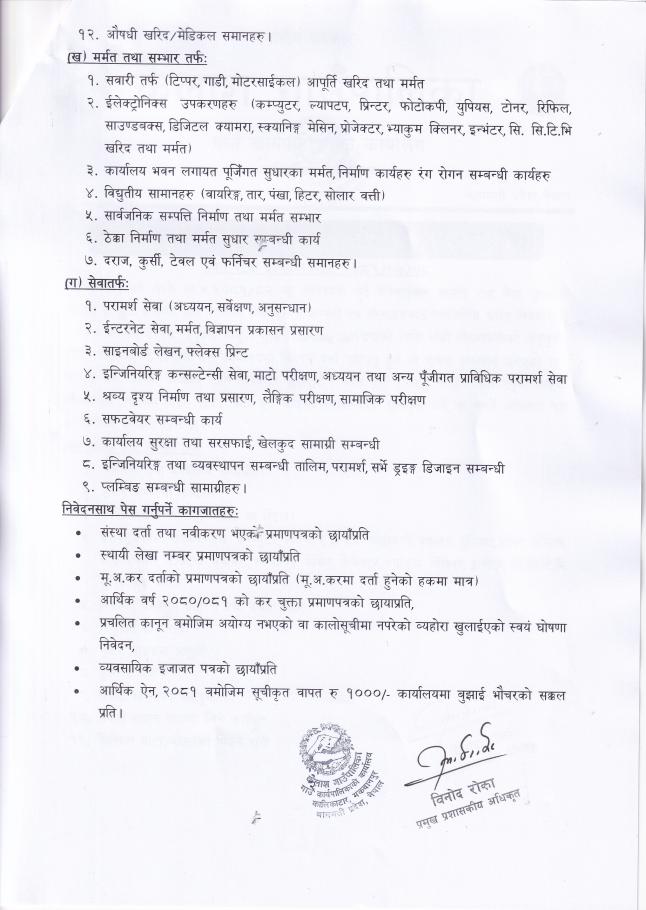 १२. औषधी खरिद/मेडिकल समानहरु।
(ख) मर्मत तथा सम्भार तर्फः
१. सवारी तर्फ (टिप्पर, गाडी, मोटरसाईकल) आपूर्ति खरिद तथा मर्मत
२. ईलेक्ट्रोनिक्स उपकरणहरु (कम्प्युटर, ल्यापटप, प्रिन्टर, फोटोकपी, युपियस, टोनर, रिफिल,
साउण्डबक्स, डिजिटल क्यामरा, स्क्यानिङ्ग मेसिन, प्रोजेक्टर, भ्याकुम क्लिनर, इन्भंटर, सि. सि.टि.भि
खरिद तथा मर्मत)
३. कार्यालय भवन लगायत पूजिँगत सुधारका मर्मत, निर्माण कार्यहरु रंग रोगन सम्बन्धी कार्यहरु
४. विद्युतीय सामानहरु (वायरिङ्ग, तार, पंखा, हिटर, सोलार वत्ती)
५. सार्वजनिक सम्पत्ति निर्माण तथा मर्मत सम्भार
६. ठेक्का निर्माण तथा मर्मत सुधार सम्बन्धी कार्य
७. दराज, कुर्सी, टेवल एवं फर्निचर सम्बन्धी समानहरु।
(ग) सेवातर्फः
१. परामर्श सेवा (अध्ययन, सर्वेक्षण, अनुसन्धान)
२. ईन्टरनेट सेवा, मर्मत, विज्ञापन प्रकासन प्रसारण
३. साइनबोर्ड लेखन, फ्लेक्स प्रिन्ट
४. इन्जिनियरिङ्ग कन्सल्टेन्सी सेवा, माटो परीक्षण, अध्ययन तथा अन्य पूँजीगत प्राविधिक परामर्श सेवा
५. श्रव्य दृश्य निर्माण तथा प्रसारण, लैङ्गिक परीक्षण, सामाजिक परीक्षण
६. सफटवेयर सम्बन्धी कार्य
७. कार्यालय सुरक्षा तथा सरसफाई, खेलकुद सामाग्री सम्बन्धी
८. इन्जिनियरिङ्ग तथा व्यवस्थापन सम्बन्धी तालिम, परामर्श, सर्भे ड्रइङ्ग डिजाइन सम्बन्धी
९. प्लम्बिङ सम्बन्धी सामाग्रीहरु।
निवेदनसाथ पेस गर्नुपर्ने कागजातहरुः
• संस्था दर्ता तथा नवीकरण भएको प्रमाणपत्रको छायाँप्रति
• स्थायी लेखा नम्बर प्रमाणपत्रको छायाँप्रति
• मू.अ.कर दर्ताको प्रमाणपत्रको छायाँप्रति (मू.अ.करमा दर्ता हुनेको हकमा मात्र)
• आर्थिक वर्ष २०८०/०८१ को कर चुक्ता प्रमाणपत्रको छायाप्रति,
• प्रचलित कानून बमोजिम अयोग्य नभएको वा कालोसूचीमा नपरेको व्यहोरा खुलाईएको स्वयं घोषणा
निवेदन,
• व्यवसायिक इजाजत पत्रको छायाँप्रति
• आर्थिक ऐन, २०८१ बमोजिम सूचीकृत वापत रु १०००/- कार्यालयमा वुझाई भौचरको सक्कल
प्रति।
गाउँपालिका
गाउँ कार्यपालिकाको कार्यालय
कालिकाटार, मकवानपुर
बागमती प्रदेश, नेपाल
विनोद रोका
प्रमुख प्रशासकीय अधिकृत